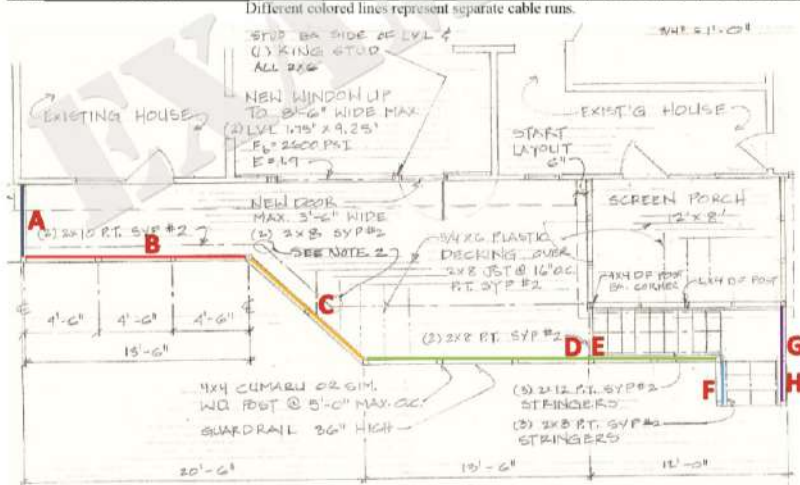 Different colored lines represent separate cable runs.
STUD EA SIDE OF LVL &
(1) KING STUD
ALL 2X6
3/4" = 1'-0"
EXISTING HOUSE
NEW WINDOW UP
TO 8'-6" WIDE MAX
(2) LVL 1.75" X 9.25"
Fb = 2600 PSI
E = 1.9
EXIST'G HOUSE
START
LAYOUT
6"
A
(2) 2X10 P.T. SYP #2
B
NEW DOOR
MAX. 3'-6" WIDE
(2) 2X8 SYP #2
SEE NOTE 2
SCREEN PORCH
12' X 8'
5/4X6 PLASTIC
DECKING OVER
2X8 JST @ 16" O.C.
P.T. SYP #2
4X4 DF POST
EA. CORNER
4X4 DF POST
C
4'-6"
4'-6"
4'-6"
13'-6"
(2) 2X8 P.T. SYP #2
D
E
F
G
H
4X4 CUMARU OR SIM.
WD. POST @ 5'-0" MAX. O.C.
GUARDRAIL 36" HIGH
(3) 2X12 P.T. SYP #2
STRINGERS
(3) 2X8 P.T. SYP #2
STRINGERS
20'-6"
13'-6"
12'-0"